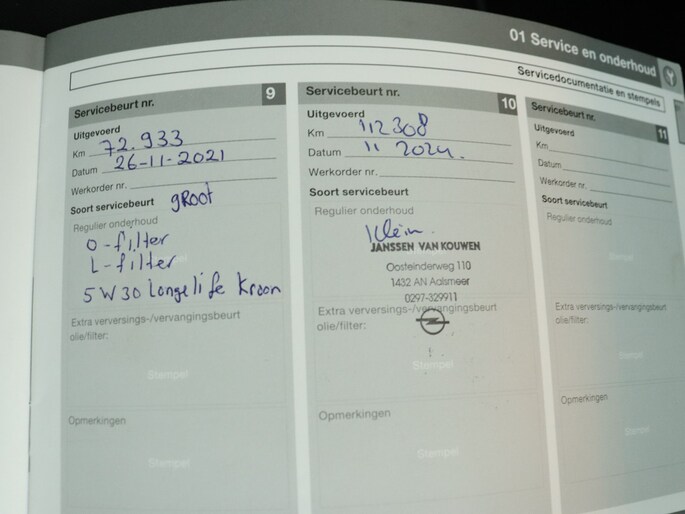 01 Service en onderhoud
Servicedocumentatie en stempels
Servicebeurt nr. 9
Uitgevoerd
Km 72.933
Datum 26-11-2021
Werkorder nr.
Soort servicebeurt groot
Regulier onderhoud
O-filter
L-filter
5W30 Longelife Kroon
Extra verversings-/vervangingsbeurt
olie/filter:
Stempel
Opmerkingen
Stempel
Servicebeurt nr. 10
Uitgevoerd
Km 112308
Datum 11 2024.
Werkorder nr.
Soort servicebeurt
Regulier onderhoud
Klein.
JANSSEN VAN KOUWEN
Oosteinderweg 110
1432 AN Aalsmeer
0297-329911
Extra verversings-/vervangingsbeurt
olie/filter:
Stempel
Opmerkingen
Stempel
Servicebeurt nr. 11
Uitgevoerd
Km
Datum
Werkorder nr.
Soort servicebeurt
Regulier onderhoud
Extra verversings-/vervangingsbeurt
olie/filter:
Stempel
Opmerkingen
Stempel